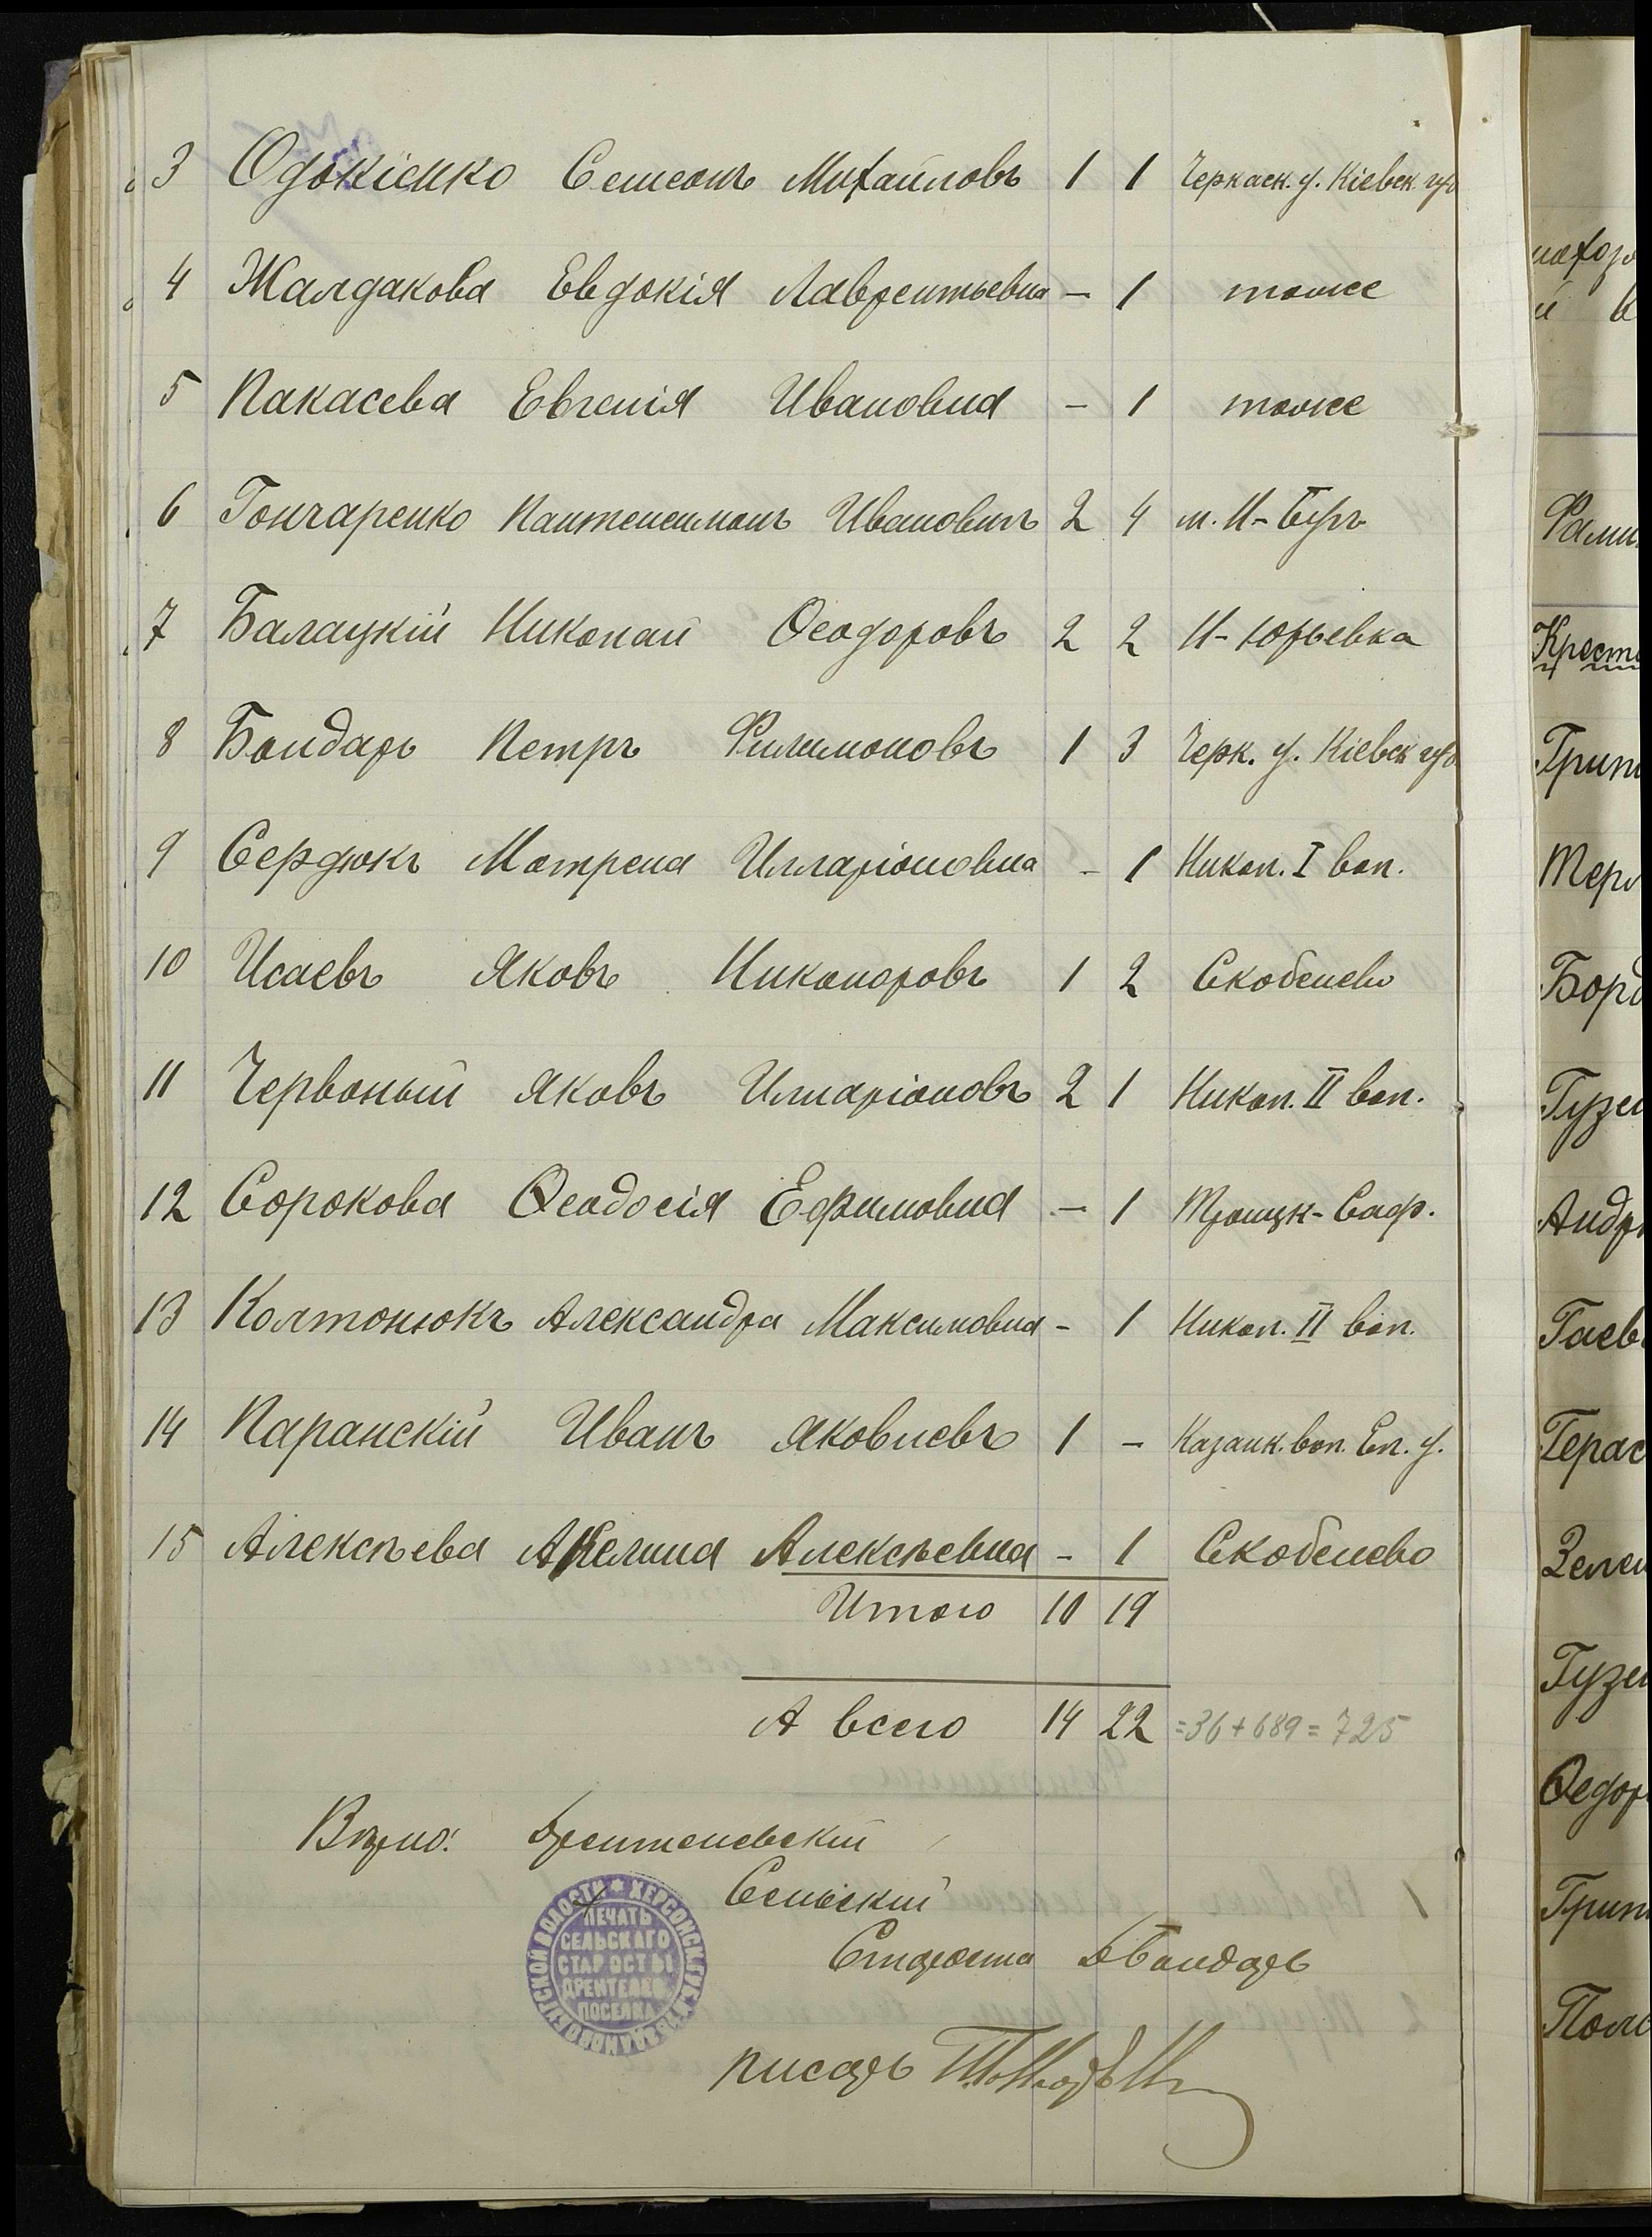 3 Одокіенко Семеонъ Михайловъ 1 1 Черкаск. у. Кіевск. губ
4 Жалдакова Евдокія Лаврентьевна - 1 тоже
5 Пакасева Евгенія Ивановна - 1 тоже
6 Гончаренко Пантелеимонъ Ивановичъ 2 4 м. Н-Бугъ
7 Балацкій Николай Ѳеодоровъ 2 2 Н-Юрьевка
8 Бондарь Петръ Филимоновъ 1 3 Черк. у. Кіевск губ
9 Сердюкъ Матрена Илларіоновна - 1 Никол. I вол.
10 Исаевъ Яковъ Никаноровъ 1 2 Скобелево
11 Червоный Яковъ Иларіоновъ 2 1 Никол. II вол.
12 Сорокова Ѳеодосія Ефимовна - 1 Троицк-Саф.
13 Колтонюкъ Александра Максимовна - 1 Никол. II вол.
14 Паранскій Иванъ Яковлевъ 1 - Казанк. вол. Ел. у.
15 Алексѣева Акелина Алексѣевна - 1 Скобелево
Итого 10 19
А всего 14 22 =36+689=725
Вѣрно: Дрентелевскій
Сельскій
Староста Бондарь
ПЕЧАТЬ
СЕЛЬСКАГО
СТАРОСТЫ
ДРЕНТЕЛЕВ.
ПОСЕЛКА
писарь
Фами
Крест
Грип
Тер
Борд
Гузе
Андр
Гаев
Герас
Зелен
Гузе
Ѳедор
Грип
Пол